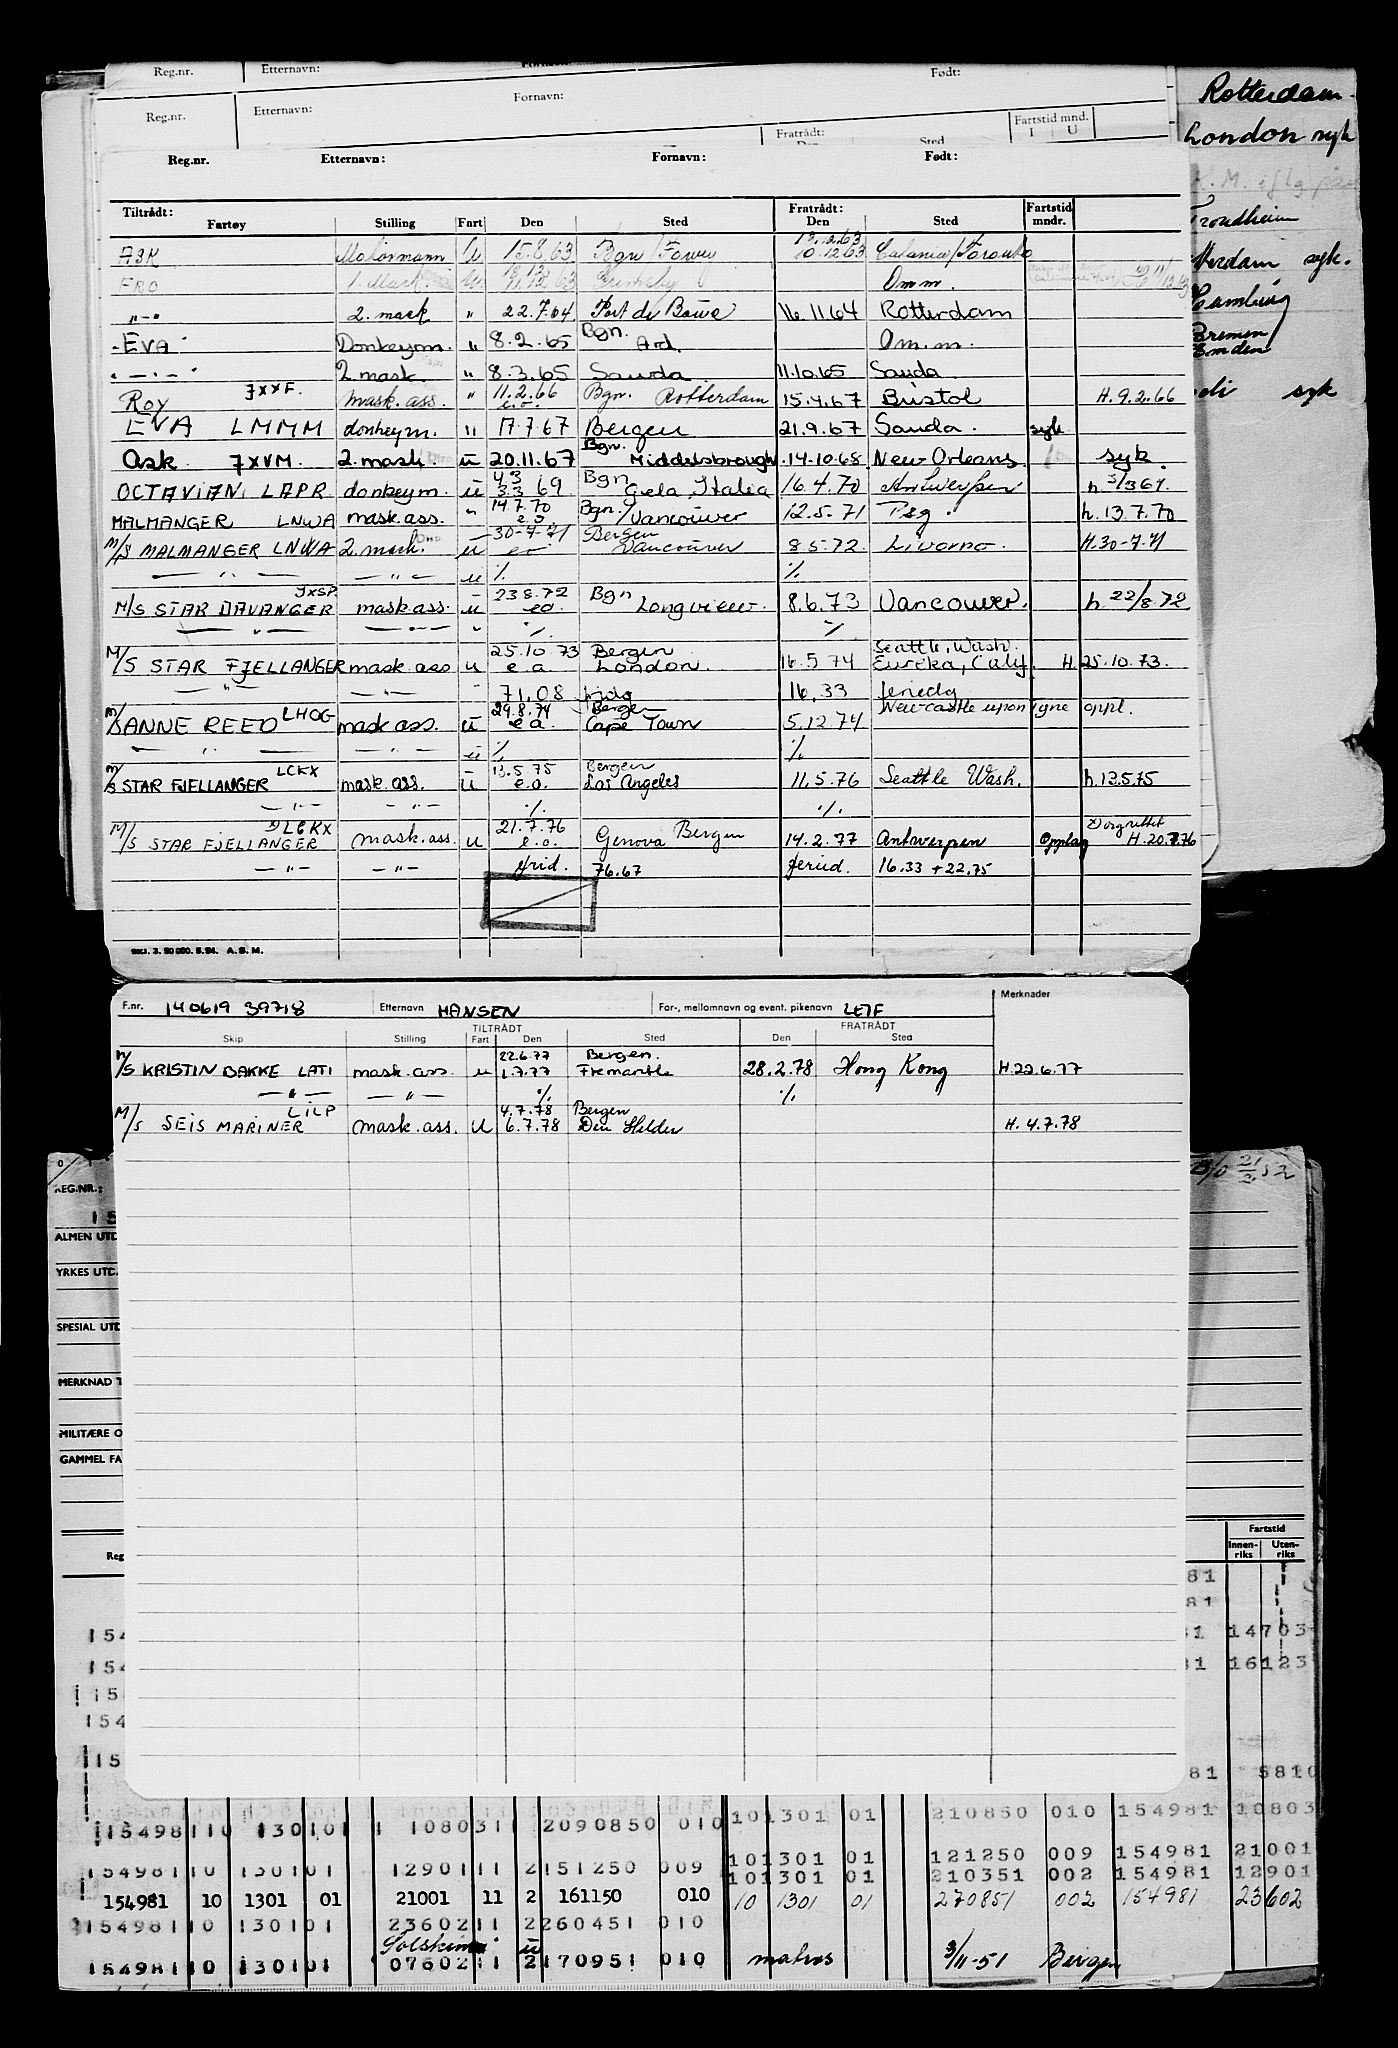 Reg.nr. Etternavn: Født:
Reg.nr. Etternavn: Fornavn:
Fratrådt: Sted Fartstid mnd. I U
Rotterdam.
London syk
Trondheim
syk.
Hamburg
Bremen
Emden
syk
Reg.nr. Etternavn: Fornavn: Født:
Tiltrådt: Fratrådt: Fartstid
Fartøy Stilling Fart Den Sted Den Sted mndr.
ASK Motormann U 15.8.63 Bgn/Fowey 10.12.63 Catania/Toronto
FRO 1. Mask. Grimsby Omm.
-"- 2. mask " 22.7.64 Port de Bouc 16.11.64 Rotterdam
-EVA- Donkeym. " 8.2.65 Bgn. Ard. Om.m.
-"- 2. mask " 8.3.65 Sauda 11.10.65 Sauda
Roy JXXF. mask. ass. " 11.2.66 e.o. Bgn. Rotterdam 15.4.67 Bristol H.9.2.66
EVA LMMM donkeym. " 17.7.67 Bergen 21.9.67 Sauda. syk
Ask JXVM. 2. mask. u 20.11.67 Bgn. Middelsbrough 14.10.68 New Orleans syk.
OCTAVIAN LAPR donkeym. u 4.3 3.3 69 Bgn Gela, Italia 16.4.70 Antwerpen h. 3/3 69.
MALMANGER LNWA mask. ass. " 14.7.70 e.o Bgn./Vancouver 12.5.71 h. 13.7.70
M/S MALMANGER LNWA 2. mask. u 30-7-71 eo Bergen Vancouver 8.5.72 Livorno. H.30-7-71
— " — — " — u % %
M/S STAR DAVANGER JXSP mask. ass. u 23.8.72 eo. Bgn Longview. 8.6.73 Vancouver. h. 22/8.72
— " — — " — " % %
M/S STAR FJELLANGER mask. ass u 25.10.73 e.o. Bergen London. 16.5.74 Seattle, Wash. Eureka, Calif. H. 25.10.73.
— " — — " — 71.08 16.33
M/S ANNE REED LHOG mask ass. u 29.8.74 e.o. Bergen Cape Town 5.12.74 Newcastle upon Tyne oppl.
— " — — " — u % %
M/S STAR FJELLANGER LCKX mask. ass. u 13.5.75 e.o. Bergen Los Angeles 11.5.76 Seattle Wash. h.12.5.75
— " — — " — % %
M/S STAR FJELLANGER LCKX mask. ass. u 21.7.76 e.o. Genova Bergen 14.2.77 Antwerpen Opplag H. 20.7.76
— " — — " — frid. 76.67 feried. 16.33 + 22.75
A. S. M.
F.nr. 140619 39718 Etternavn HANSEN For-, mellomnavn og event. pikenavn LEIF Merknader
TILTRÅDT FRATRÅDT
Skip Stilling Fart Den Sted Den Sted
M/S KRISTIN BAKKE LATI mask. ass. u 22.6.77 1.7.77 Bergen. Fremantle 28.2.78 Hong Kong H.22.6.77
— " — — " — % %
M/S SEIS MARINER LILP mask. ass. U 4.7.78 6.7.78 Bergen Den Helder H. 4.7.78
REG.NR.:
ALMEN UTD
YRKES UTD.
SPESIAL UTD
MERKNAD T
MILITÆRE O
GAMMEL FA
Fartstid
Reg Innen-riks Uten-riks
81
81
154 81 14703
154 81 16123
154
154
15 81 5810
154981 10 1301 01 10803 11 2 090850 010 10 1301 01 210850 010 154981 10803
154981 10 1301 01 12901 11 2 151250 009 10 1301 01 121250 009 154981 21001
10 1301 01 210351 002 154981 12901
154981 10 1301 01 21001 11 2 161150 010 10 1301 01 270851 002 154981 23602
154981 10 1301 01 23602 11 2 260451 010
Solskinn u
154981 10 1301 01 07602 11 2 170951 010 matros 3/11-51 Bergen